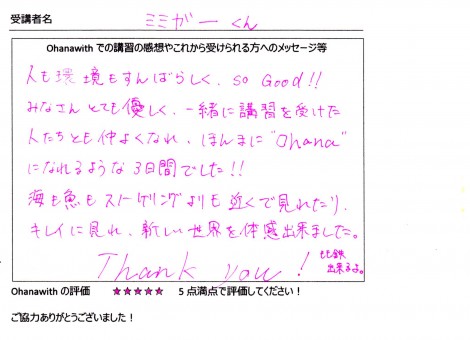 受講者名 ミミガー くん
Ohanawith での講習の感想やこれから受けられる方へのメッセージ等
人も環境もすんばらしく、so Good!!
みなさんとても優しく、一緒に講習を受けた
人たちとも仲よくなれ、ほんまに"Ohana"
になれるような3日間でした!!
海も魚もスノーケリングよりも近くで見れたり、
キレイに見れ、新しい世界を体感出来ました。
Thank you!
出来るよ。
Ohanawith の評価 ★★★★★ 5 点満点で評価してください!
ご協力ありがとうございました!